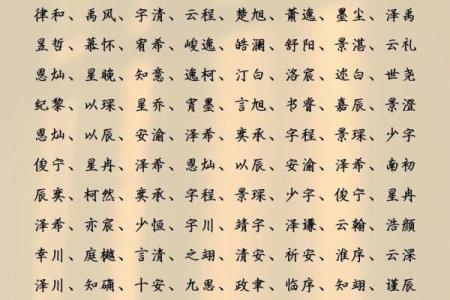 律和、禹风、字清、云程、楚旭、萧逸、墨尘、泽禹
昱哲、慕怀、宥希、峻逸、皓澜、舒阳、景湛、云礼
恩灿、星晚、知意、逸柯、汀白、洛宸、述白、世尧
纪黎、以琛、星乔、宵墨、言旭、书睿、嘉辰、景澄
恩灿、以辰、安渝、泽希、奕承、字程、景琛、少字
俊宁、星冉、泽希、恩灿、以辰、安渝、泽希、南初
辰奕、柯然、奕承、字程、景琛、少字、俊宁、星冉
泽希、亦宸、少恒、字川、靖字、泽谦、云翰、浩颜
幸川、庭樾、言清、之翊、清安、祈安、淮序、云深
泽川、知确、十安、九思、政聿、临序、知翊、谨辰